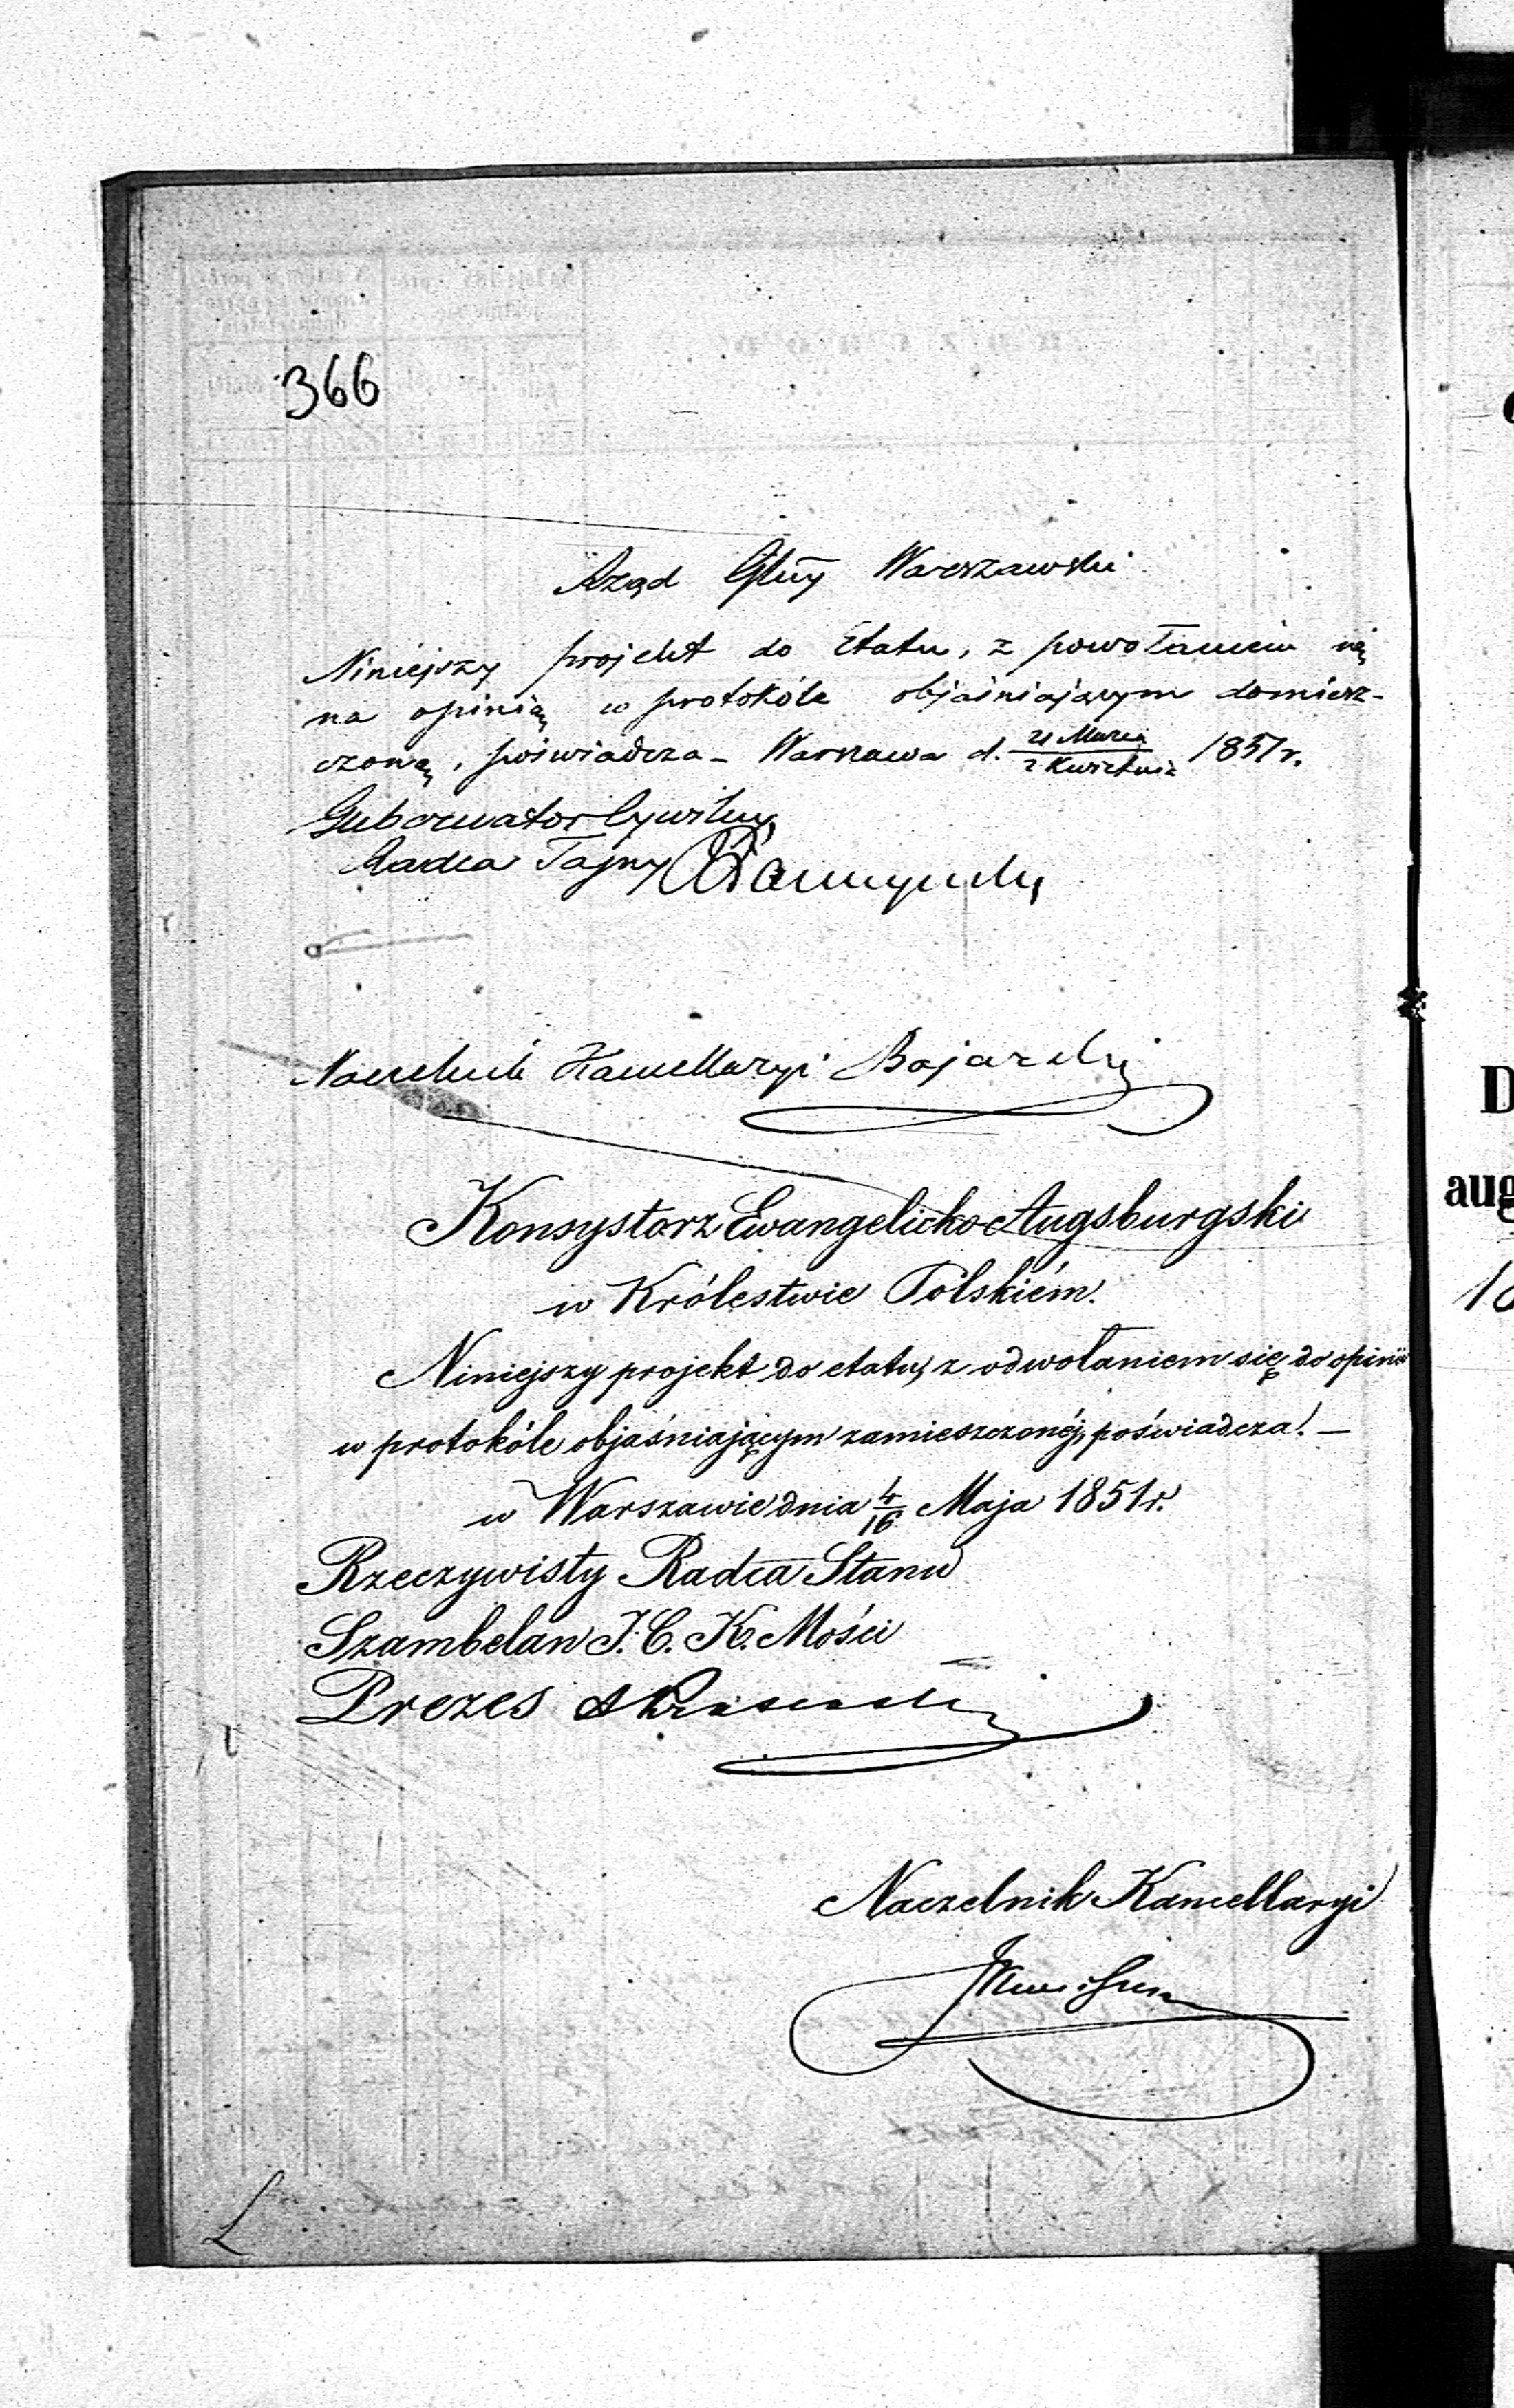 366
Rząd Głny Warszawski
Niniejszy projekt do Etatu, z powołaniem się
na opinią w protokóle objaśniającym domiesz-
czoną, poświadcza – Warszawa d. 21 Marca / 2 Kwietnia 1851 r.
Gubernator Cywilny
Radca Tajny
Naczelnik Kancellaryi Bojarski
Konsystorz Ewangelicko Augsburgski
w Królestwie Polskiém.
Niniejszy projekt do etatu, z odwołaniem się do opinii
w protokóle objaśniającym zamieszczonéj, poświadcza. –
w Warszawie dnia 4/16 Maja 1851 r.
Rzeczywisty Radca Stanu
Szambelan J. C. K. Mości
Prezes
Naczelnik Kancellaryi
L
D
aug